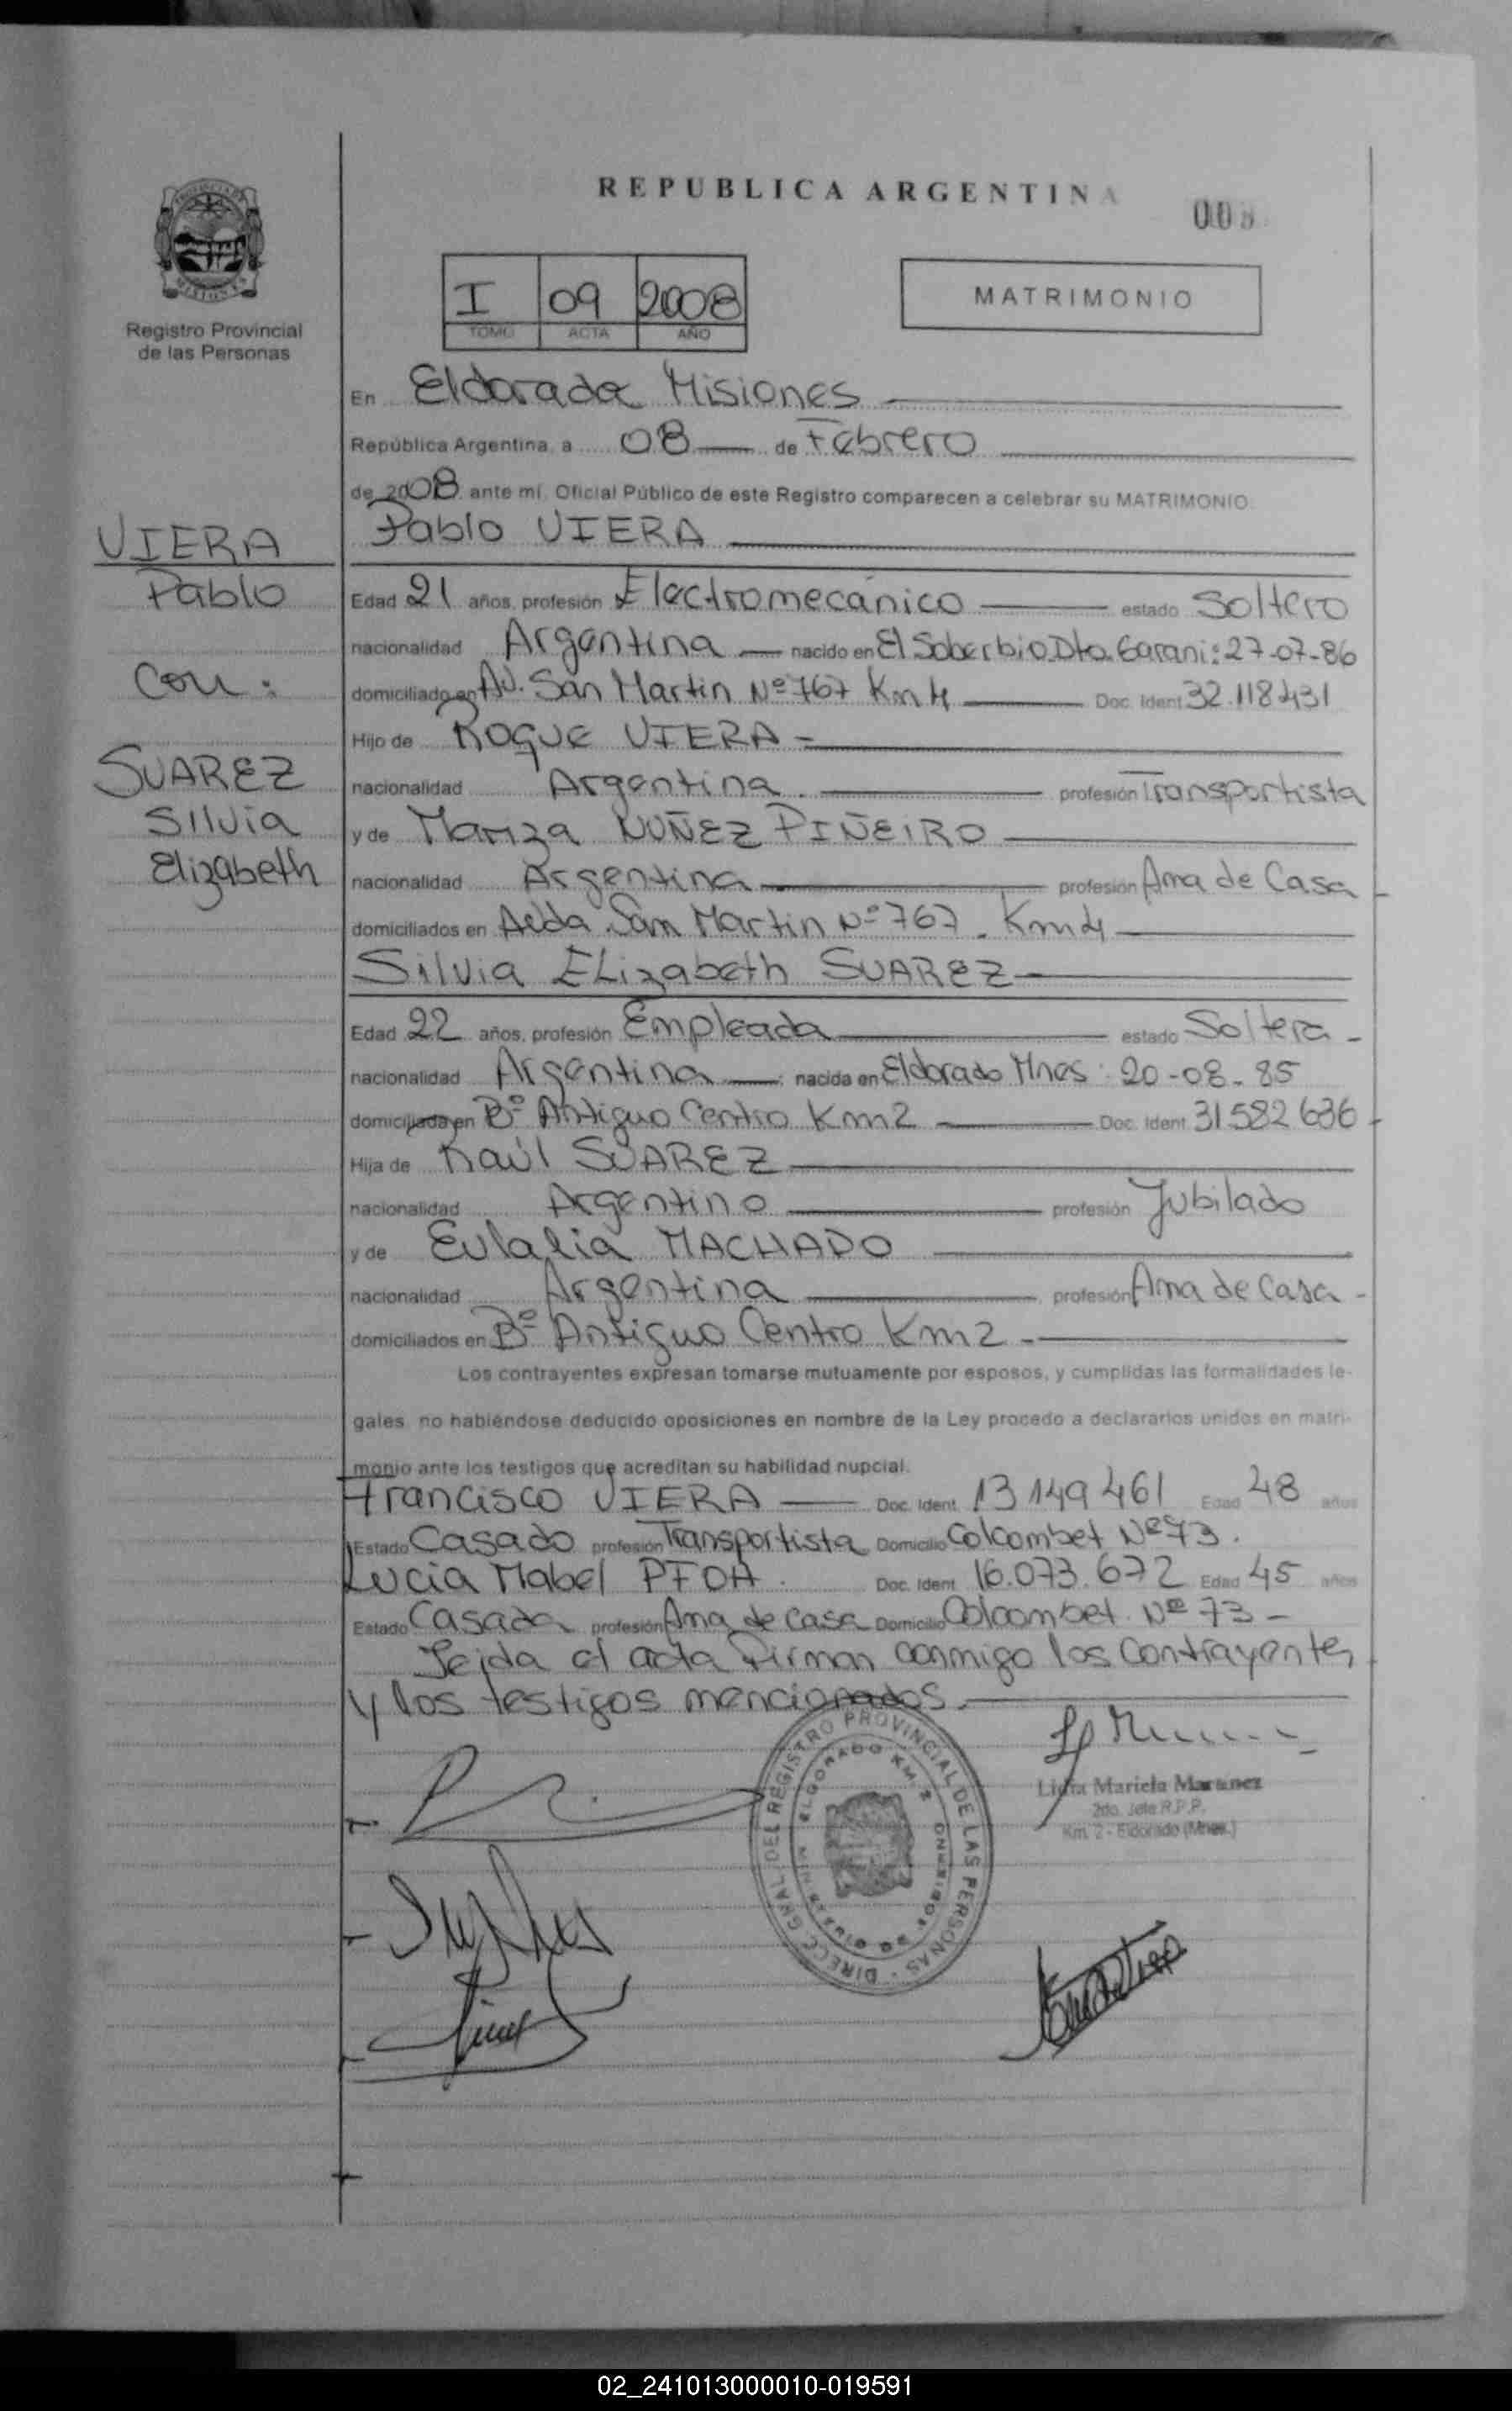 REPUBLICA ARGENTINA
008
I 09 2008
TOMO ACTA AÑO
MATRIMONIO
Registro Provincial
de las Personas
En Eldorado Misiones
República Argentina, a 08 de Febrero
de 2008 ante mí, Oficial Público de este Registro comparecen a celebrar su MATRIMONIO
Pablo VIERA
VIERA
Pablo
con:
SUAREZ
Silvia
Elizabeth
Edad 21 años, profesión Electromecánico estado Soltero
nacionalidad Argentina nacido en El Soberbio Dto. Garani: 27-07-86
domiciliado en Av. San Martin Nº 767 Km 4 Doc. Ident 32.118431
Hijo de ROQUE VIERA
nacionalidad Argentina profesión Transportista
y de Mariza NUÑEZ PIÑEIRO
nacionalidad Argentina profesión Ama de Casa
domiciliados en Avda San Martin Nº 767. Km 4
Silvia ELizabeth SUAREZ
Edad 22 años, profesión Empleada estado Soltera
nacionalidad Argentina nacida en Eldorado Mnes: 20-08-85
domiciliada en Bº Antiguo Centro Km 2 Doc. Ident. 31582636
Hija de Raúl SUAREZ
nacionalidad Argentino profesión Jubilado
y de Eulalia MACHADO
nacionalidad Argentina profesión Ama de Casa
domiciliados en Bº Antiguo Centro Km 2
Los contrayentes expresan tomarse mutuamente por esposos, y cumplidas las formalidades le-
gales, no habiéndose deducido oposiciones en nombre de la Ley procedo a declararlos unidos en matri-
monio ante los testigos que acreditan su habilidad nupcial.
Francisco VIERA Doc. Ident. 13149461 Edad 48 años
Estado Casado profesión Transportista Domicilio Colcombet Nº 73.
Lucia Mabel PFOH. Doc. Ident. 16.073.672 Edad 45 años
Estado Casada profesión Ama de Casa Domicilio Colcombet Nº 73
Leida el acta Firman conmigo los contrayentes
y los testigos mencionados.
DIRECC. GRAL. DEL REGISTRO PROVINCIAL DE LAS PERSONAS
ELDORADO KM. 2
Lidia Mariela Martinez
2do. Jefe R.P.P.
Km. 2 - Eldorado (Mnes.)
02_241013000010-019591